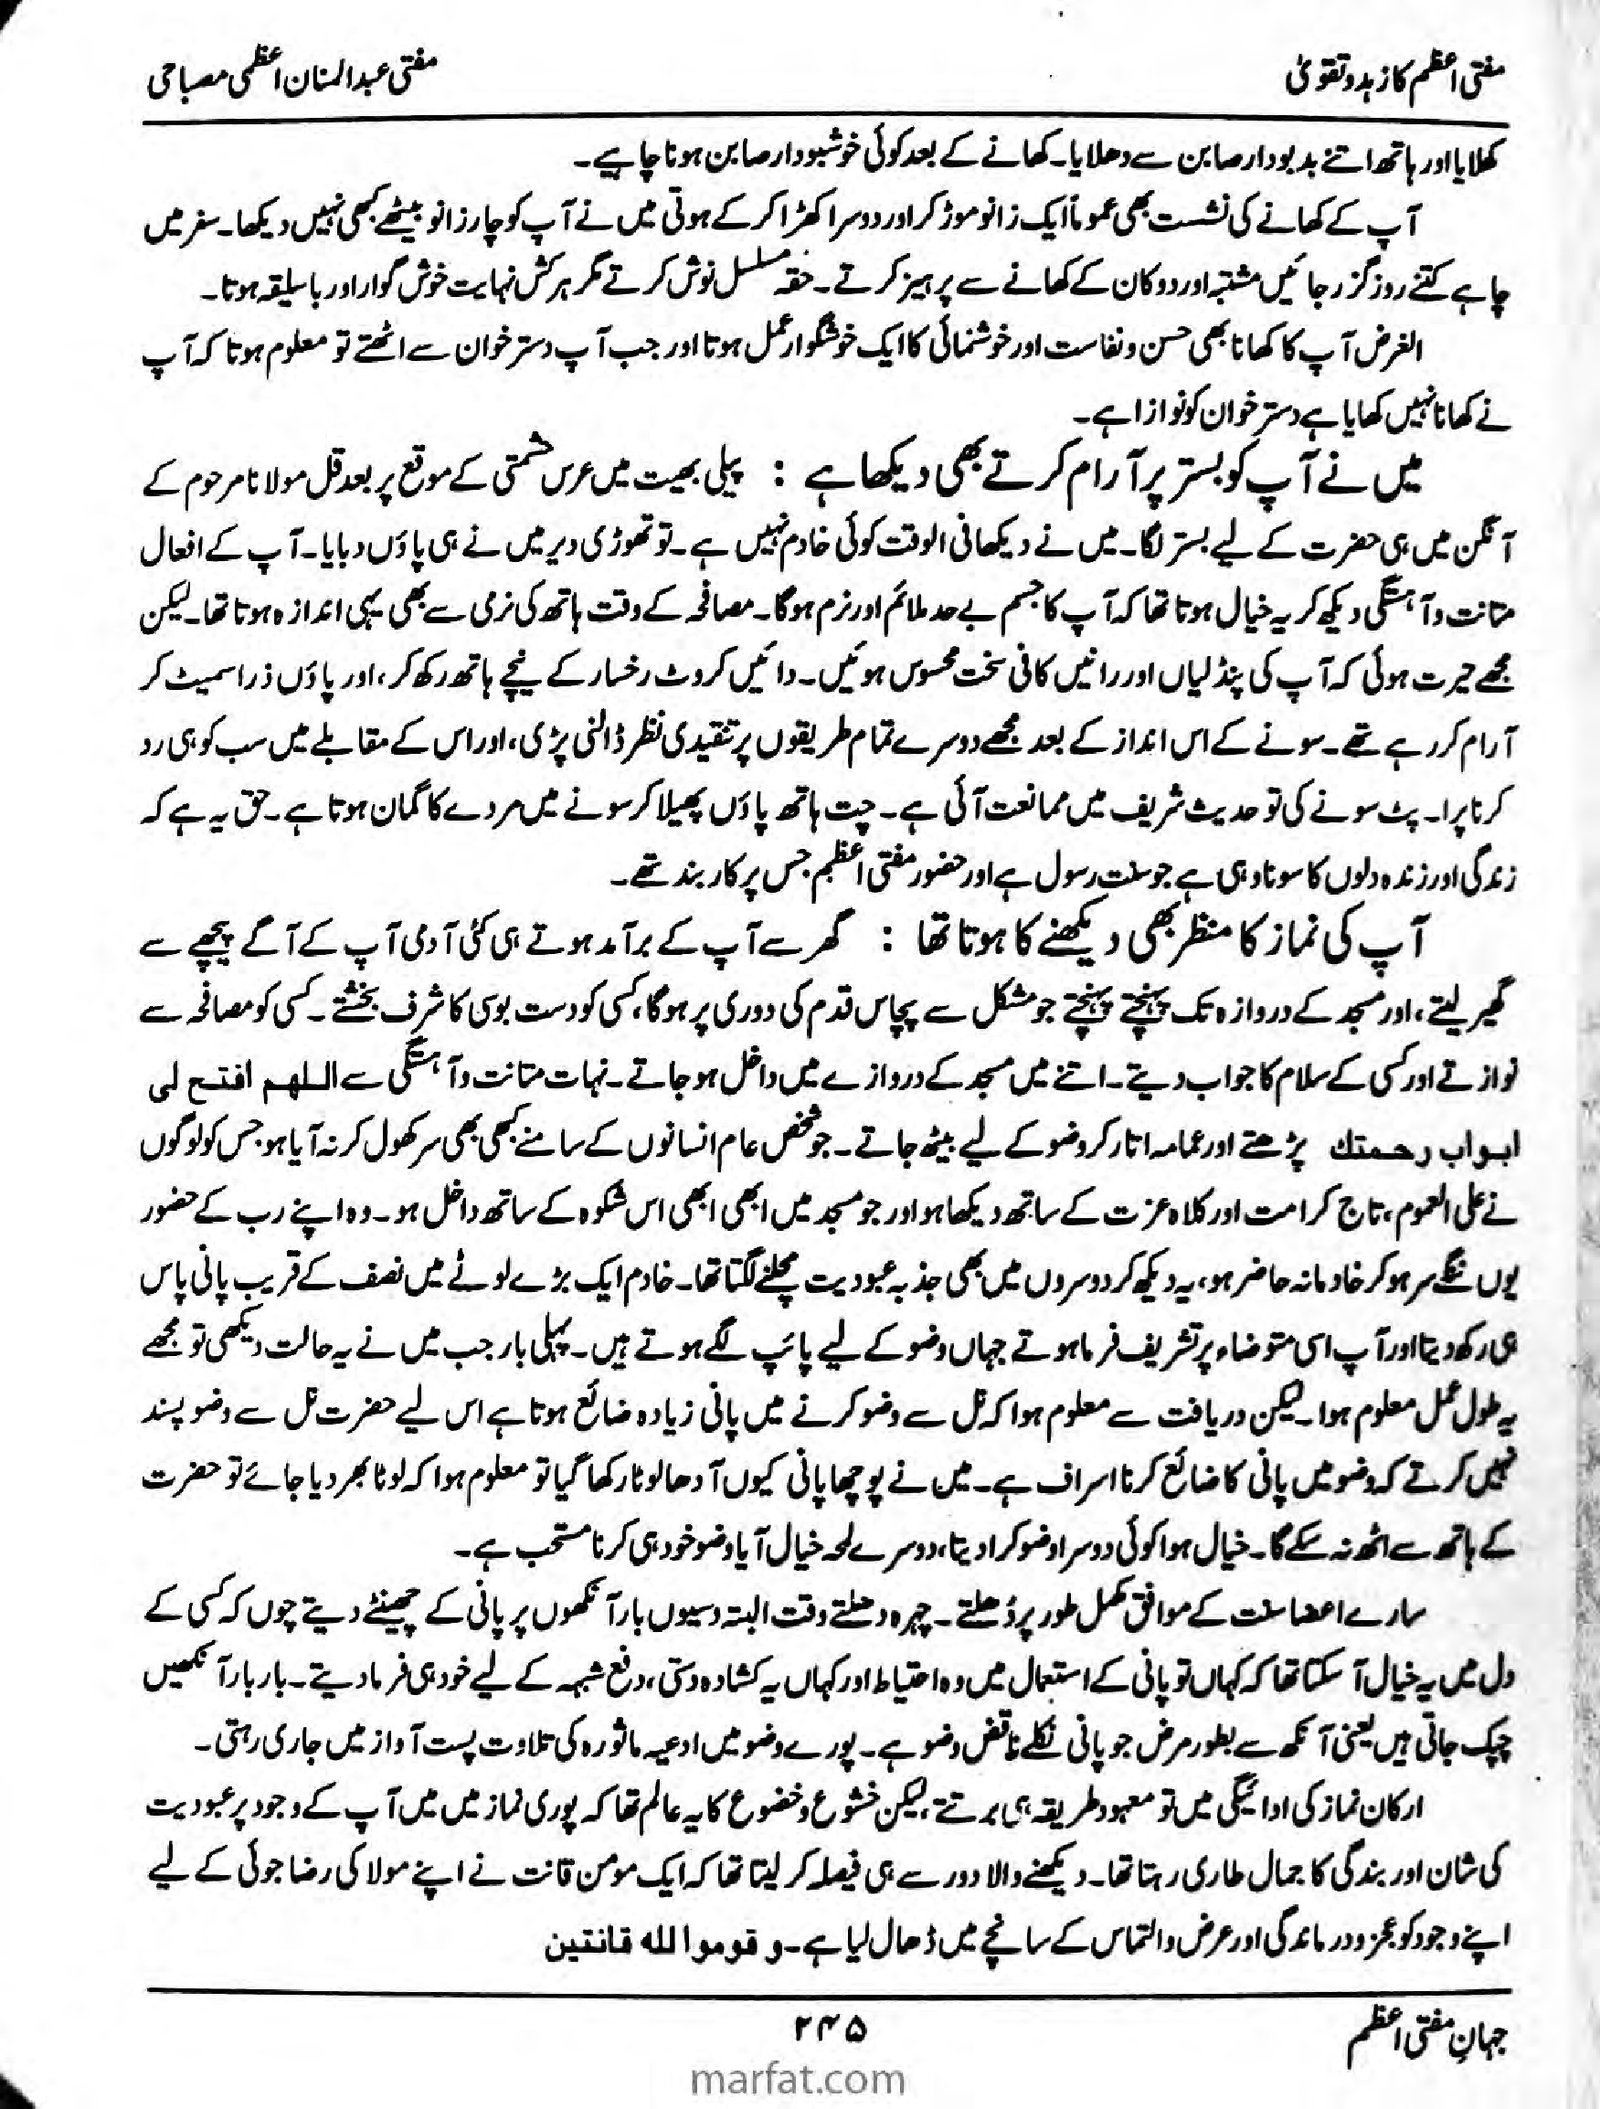 مفتی اعظم کا زہد و تقویٰ
مفتی عبدالمنان اعظمی مصباحی
کھلایا اور ہاتھ اتنے بدبودار صابن سے دھلایا۔ کھانے کے بعد کوئی خوشبودار صابن ہونا چاہیے۔
آپ کے کھانے کی نشست بھی عموماً ایک زانو موڑ کر اور دوسرا کھڑا کر کے ہوتی میں نے آپ کو چار زانو بیٹھے کبھی نہیں دیکھا۔ سفر میں
چاہے کتنے روز گزر جائیں مشتبہ اور دوکان کے کھانے سے پرہیز کرتے۔ حقہ مسلسل نوش کرتے مگر ہر کش نہایت خوش گوار اور با سلیقہ ہوتا۔
الغرض آپ کا کھانا بھی حسن و نفاست اور خوشنمائی کا ایک خوشگوار عمل ہوتا اور جب آپ دسترخوان سے اٹھتے تو معلوم ہوتا کہ آپ
نے کھانا نہیں کھایا ہے دسترخوان کو نوازا ہے۔
میں نے آپ کو بستر پر آرام کرتے بھی دیکھا ہے : پیلی بھیت میں عرس حشمتی کے موقع پر بعد قل مولانا مرحوم کے
آنگن میں ہی حضرت کے لیے بستر لگا۔ میں نے دیکھا فی الوقت کوئی خادم نہیں ہے۔ تو تھوڑی دیر میں نے ہی پاؤں دبایا۔ آپ کے افعال
متانت و آہستگی دیکھ کر یہ خیال ہوتا تھا کہ آپ کا جسم بے حد ملائم اور نرم ہوگا۔ مصافحہ کے وقت ہاتھ کی نرمی سے بھی یہی اندازہ ہوتا تھا۔ لیکن
مجھے حیرت ہوئی کہ آپ کی پنڈلیاں اور رانیں کافی سخت محسوس ہوئیں۔ دائیں کروٹ رخسار کے نیچے ہاتھ رکھ کر، اور پاؤں ذرا سمیٹ کر
آرام کر رہے تھے۔ سونے کے اس انداز کے بعد مجھے دوسرے تمام طریقوں پر تنقیدی نظر ڈالنی پڑی، اور اس کے مقابلے میں سب کو ہی رد
کرنا پرا۔ پٹ سونے کی تو حدیث شریف میں ممانعت آئی ہے۔ چت ہاتھ پاؤں پھیلا کر سونے میں مردے کا گمان ہوتا ہے۔ حق یہ ہے کہ
زندگی اور زندہ دلوں کا سونا وہی ہے جو سنت رسول ہے اور حضور مفتی اعظم جس پر کاربند تھے۔
آپ کی نماز کا منظر بھی دیکھنے کا ہوتا تھا : گھر سے آپ کے برآمد ہوتے ہی کئی آدمی آپ کے آگے پیچھے سے
گھیر لیتے، اور مسجد کے دروازہ تک پہنچتے پہنچتے جو مشکل سے پچاس قدم کی دوری پر ہوگا، کسی کو دست بوسی کا شرف بخشتے۔ کسی کو مصافحہ سے
نوازتے اور کسی کے سلام کا جواب دیتے۔ اتنے میں مسجد کے دروازے میں داخل ہو جاتے۔ نہات متانت و آہستگی سے اللهم افتح لی
ابواب رحمتك پڑھتے اور عمامہ اتار کر وضو کے لیے بیٹھ جاتے۔ جو شخص عام انسانوں کے سامنے کبھی بھی سر کھول کر نہ آیا ہو جس کو لوگوں
نے علی العموم، تاج کرامت اور کلاہ عزت کے ساتھ دیکھا ہو اور جو مسجد میں ابھی ابھی اس شکوہ کے ساتھ داخل ہو۔ وہ اپنے رب کے حضور
یوں ننگے سر ہو کر خادمانہ حاضر ہو، یہ دیکھ کر دوسروں میں بھی جذبہ عبودیت مچلنے لگتا تھا۔ خادم ایک بڑے لوٹے میں نصف کے قریب پانی پاس
ہی رکھ دیتا اور آپ اسی متوضاء پر تشریف فرما ہوتے جہاں وضو کے لیے پائپ لگے ہوتے ہیں۔ پہلی بار جب میں نے یہ حالت دیکھی تو مجھے
یہ طول عمل معلوم ہوا۔ لیکن دریافت سے معلوم ہوا کہ نل سے وضو کرنے میں پانی زیادہ ضائع ہوتا ہے اس لیے حضرت نل سے وضو پسند
نہیں کرتے کہ وضو میں پانی کا ضائع کرنا اسراف ہے۔ میں نے پوچھا پانی کیوں آدھا لوٹا رکھا گیا تو معلوم ہوا کہ لوٹا بھر دیا جائے تو حضرت
کے ہاتھ سے اٹھ نہ سکے گا۔ خیال ہوا کوئی دوسرا وضو کرا دیتا، دوسرے لمحہ خیال آیا وضو خود ہی کرنا مستحب ہے۔
سارے اعضا سنت کے موافق مکمل طور پر دُھلتے۔ چہرہ دھلتے وقت البتہ دسیوں بار آنکھوں پر پانی کے چھینٹے دیتے چوں کہ کسی کے
دل میں یہ خیال آ سکتا تھا کہ کہاں تو پانی کے استعمال میں وہ احتیاط اور کہاں یہ کشادہ دستی، دفع شبہہ کے لیے خود ہی فرما دیتے۔ بار بار آنکھیں
چپک جاتی ہیں یعنی آنکھ سے بطور مرض جو پانی نکلے ناقض وضو ہے۔ پورے وضو میں ادعیہ ماثورہ کی تلاوت پست آواز میں جاری رہتی۔
ارکان نماز کی ادائیگی میں تو معہود طریقہ ہی برتتے، لیکن خشوع و خضوع کا یہ عالم تھا کہ پوری نماز میں میں آپ کے وجود پر عبودیت
کی شان اور بندگی کا جمال طاری رہتا تھا۔ دیکھنے والا دور سے ہی فیصلہ کر لیتا تھا کہ ایک مومن قانت نے اپنے مولا کی رضا جوئی کے لیے
اپنے وجود کو عجز و درماندگی اور عرض و التماس کے سانچے میں ڈھال لیا ہے۔ و قوموا لله قانتین
جہانِ مفتی اعظم
۲۴۵
marfat.com